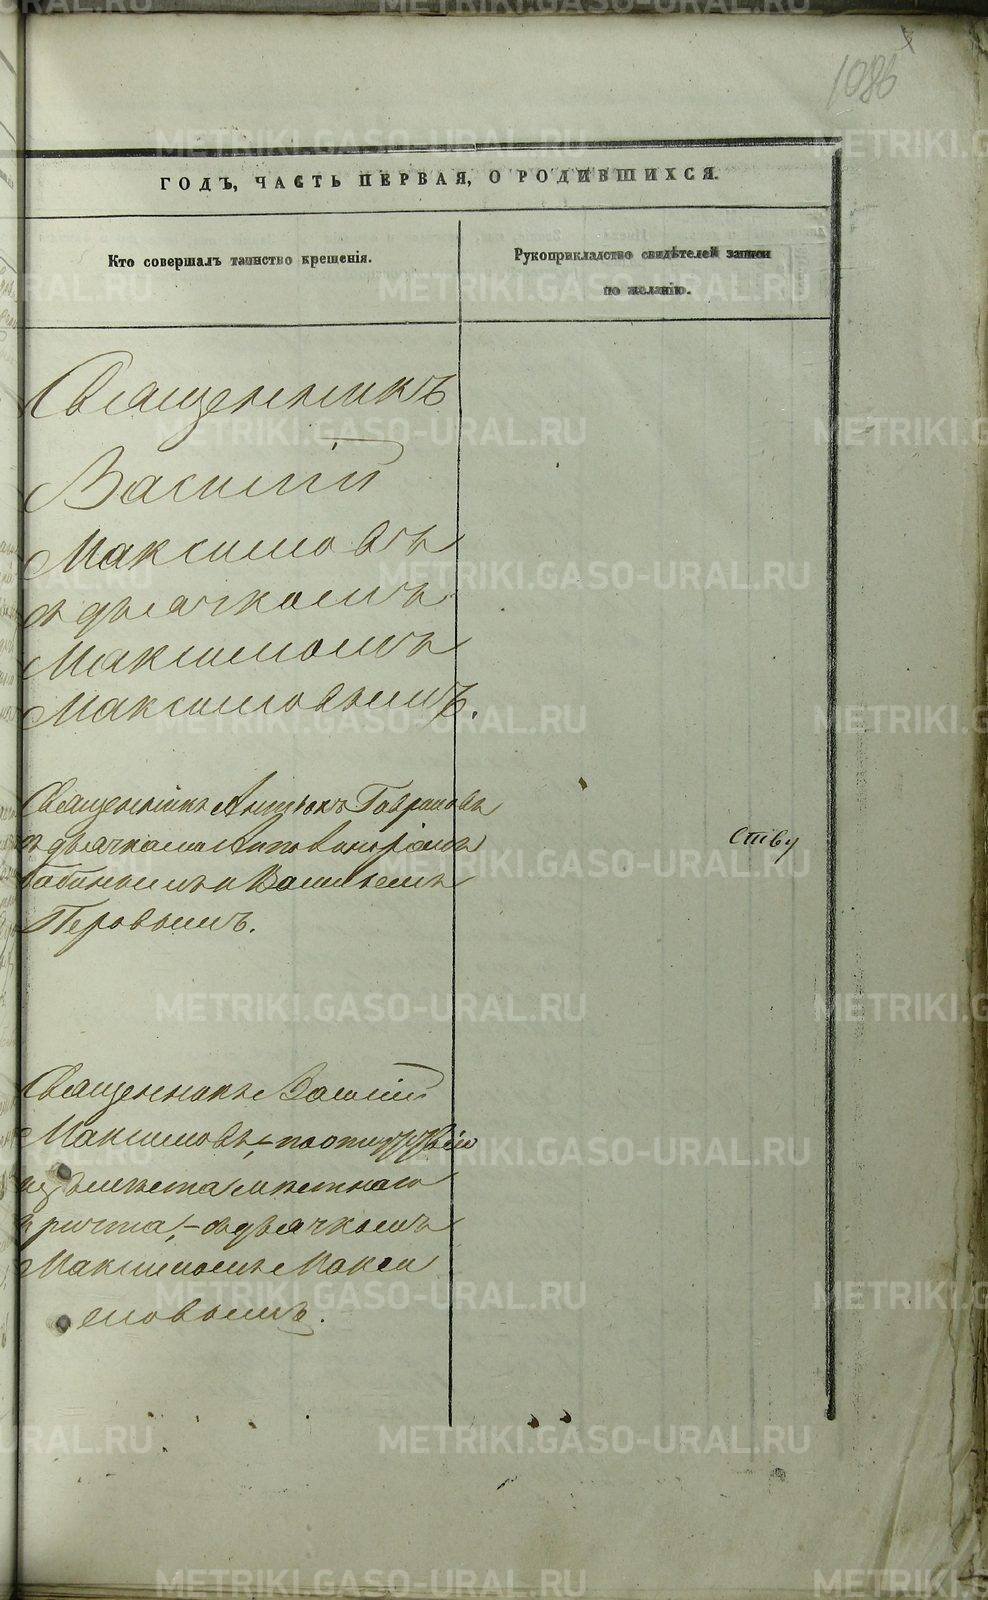 1086
ГОДЪ, ЧАСТЬ ПЕРВАЯ, О РОДИВШИХСЯ.
Кто совершалъ таинство крещенія.
Рукоприкладство свидѣтелей записи
по желанію.
Священникъ
Василій
Максимовъ
съ дьячкомъ
Максимомъ
Максимовымъ.
Священникъ Гавриловъ
съ дьячками
и Васильемъ
Перовымъ.
Ству
Священникъ Василій
Максимовъ,
мѣстнаго
причта, – съ дьячкомъ
Максимомъ Макси
мовымъ.
METRIKI.GASO-URAL.RU